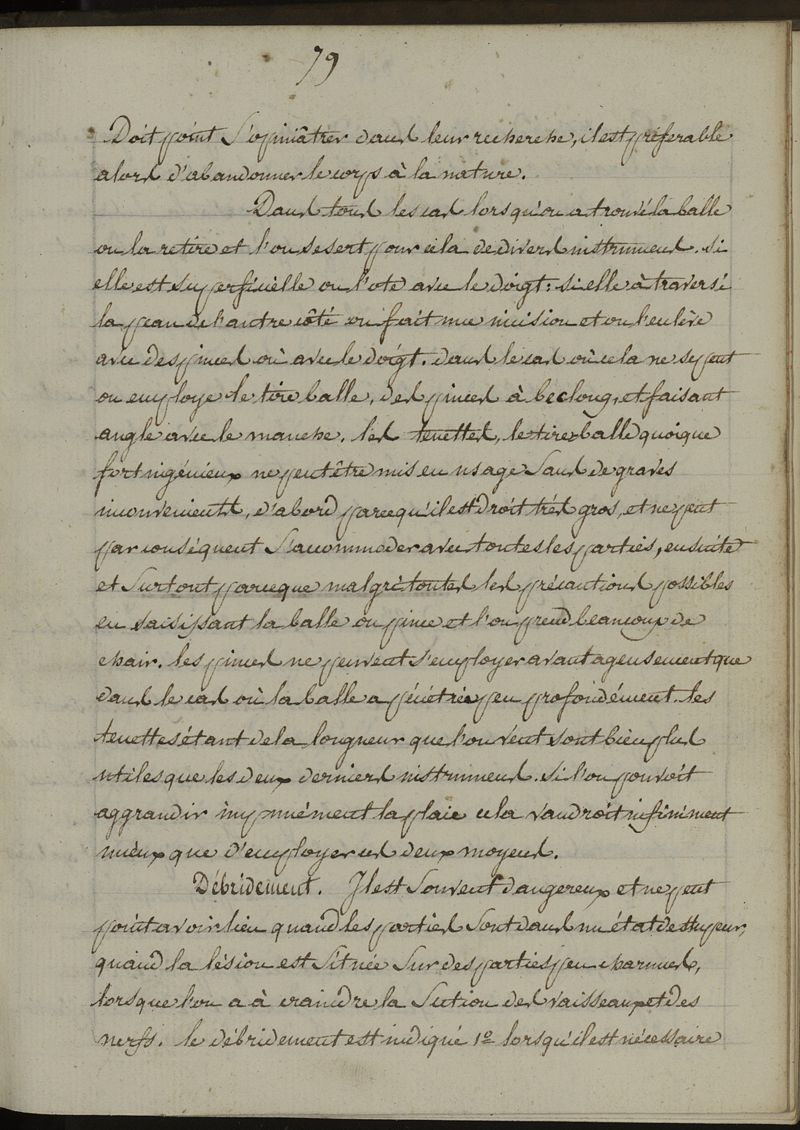 79
Doit point S'opiniâtrer dans leur recherche, il est préferable
alors d'abandonner le corps à la nature.
Dans tous les cas lorsqu'on a trouvé la balle
on la retire et l'on se sert pour cela de divers instrumens. si
elle est superficielle on l'ote avec le doigt: si elle à traversé
la peau de l'autre côté on fait une incision et on l'enlève
avec des pinces où avec le doigt. dans le cas où cela ne se peut
on employe le tire balle, des pinces à bec long, et faisant
angle avec le manche. les tenettes, le tire balle quoique
fort ingénieux ne peut être mis en usage Sans de graves
inconvenients, d'abord parcequ'il est droit très gros, et ne peut
par conséquent S'accommoder avec toutes les parties, ensuite
et Surtout parceque malgré toutes les précautions possibles
en saisissant la balle on pince et l'on prend beaucoup de
chair. les pinces ne peuvent S'employer avantageusement que
dans le cas où la balle a pénétrée peu profondément. les
tenettes étant de la longueur que l'on veut sont bien plus
utiles que les deux derniers instrumens. si l'on pouvoit
aggrandir impunément la plaie cela vaudroit infiniment
mieux que d'employer ces deux moyens.
Débridement. Il est Souvent dangereux et ne peut
point avoir lieu quand les parties Sont dans un état de stupeur,
quand la lésion est Située Sur des parties peu charnues,
lorsque l'on a à craindre la Section des vaisseaux et des
nerfs. le débridement est indiqué 1º lorsqu'il est nécessaire